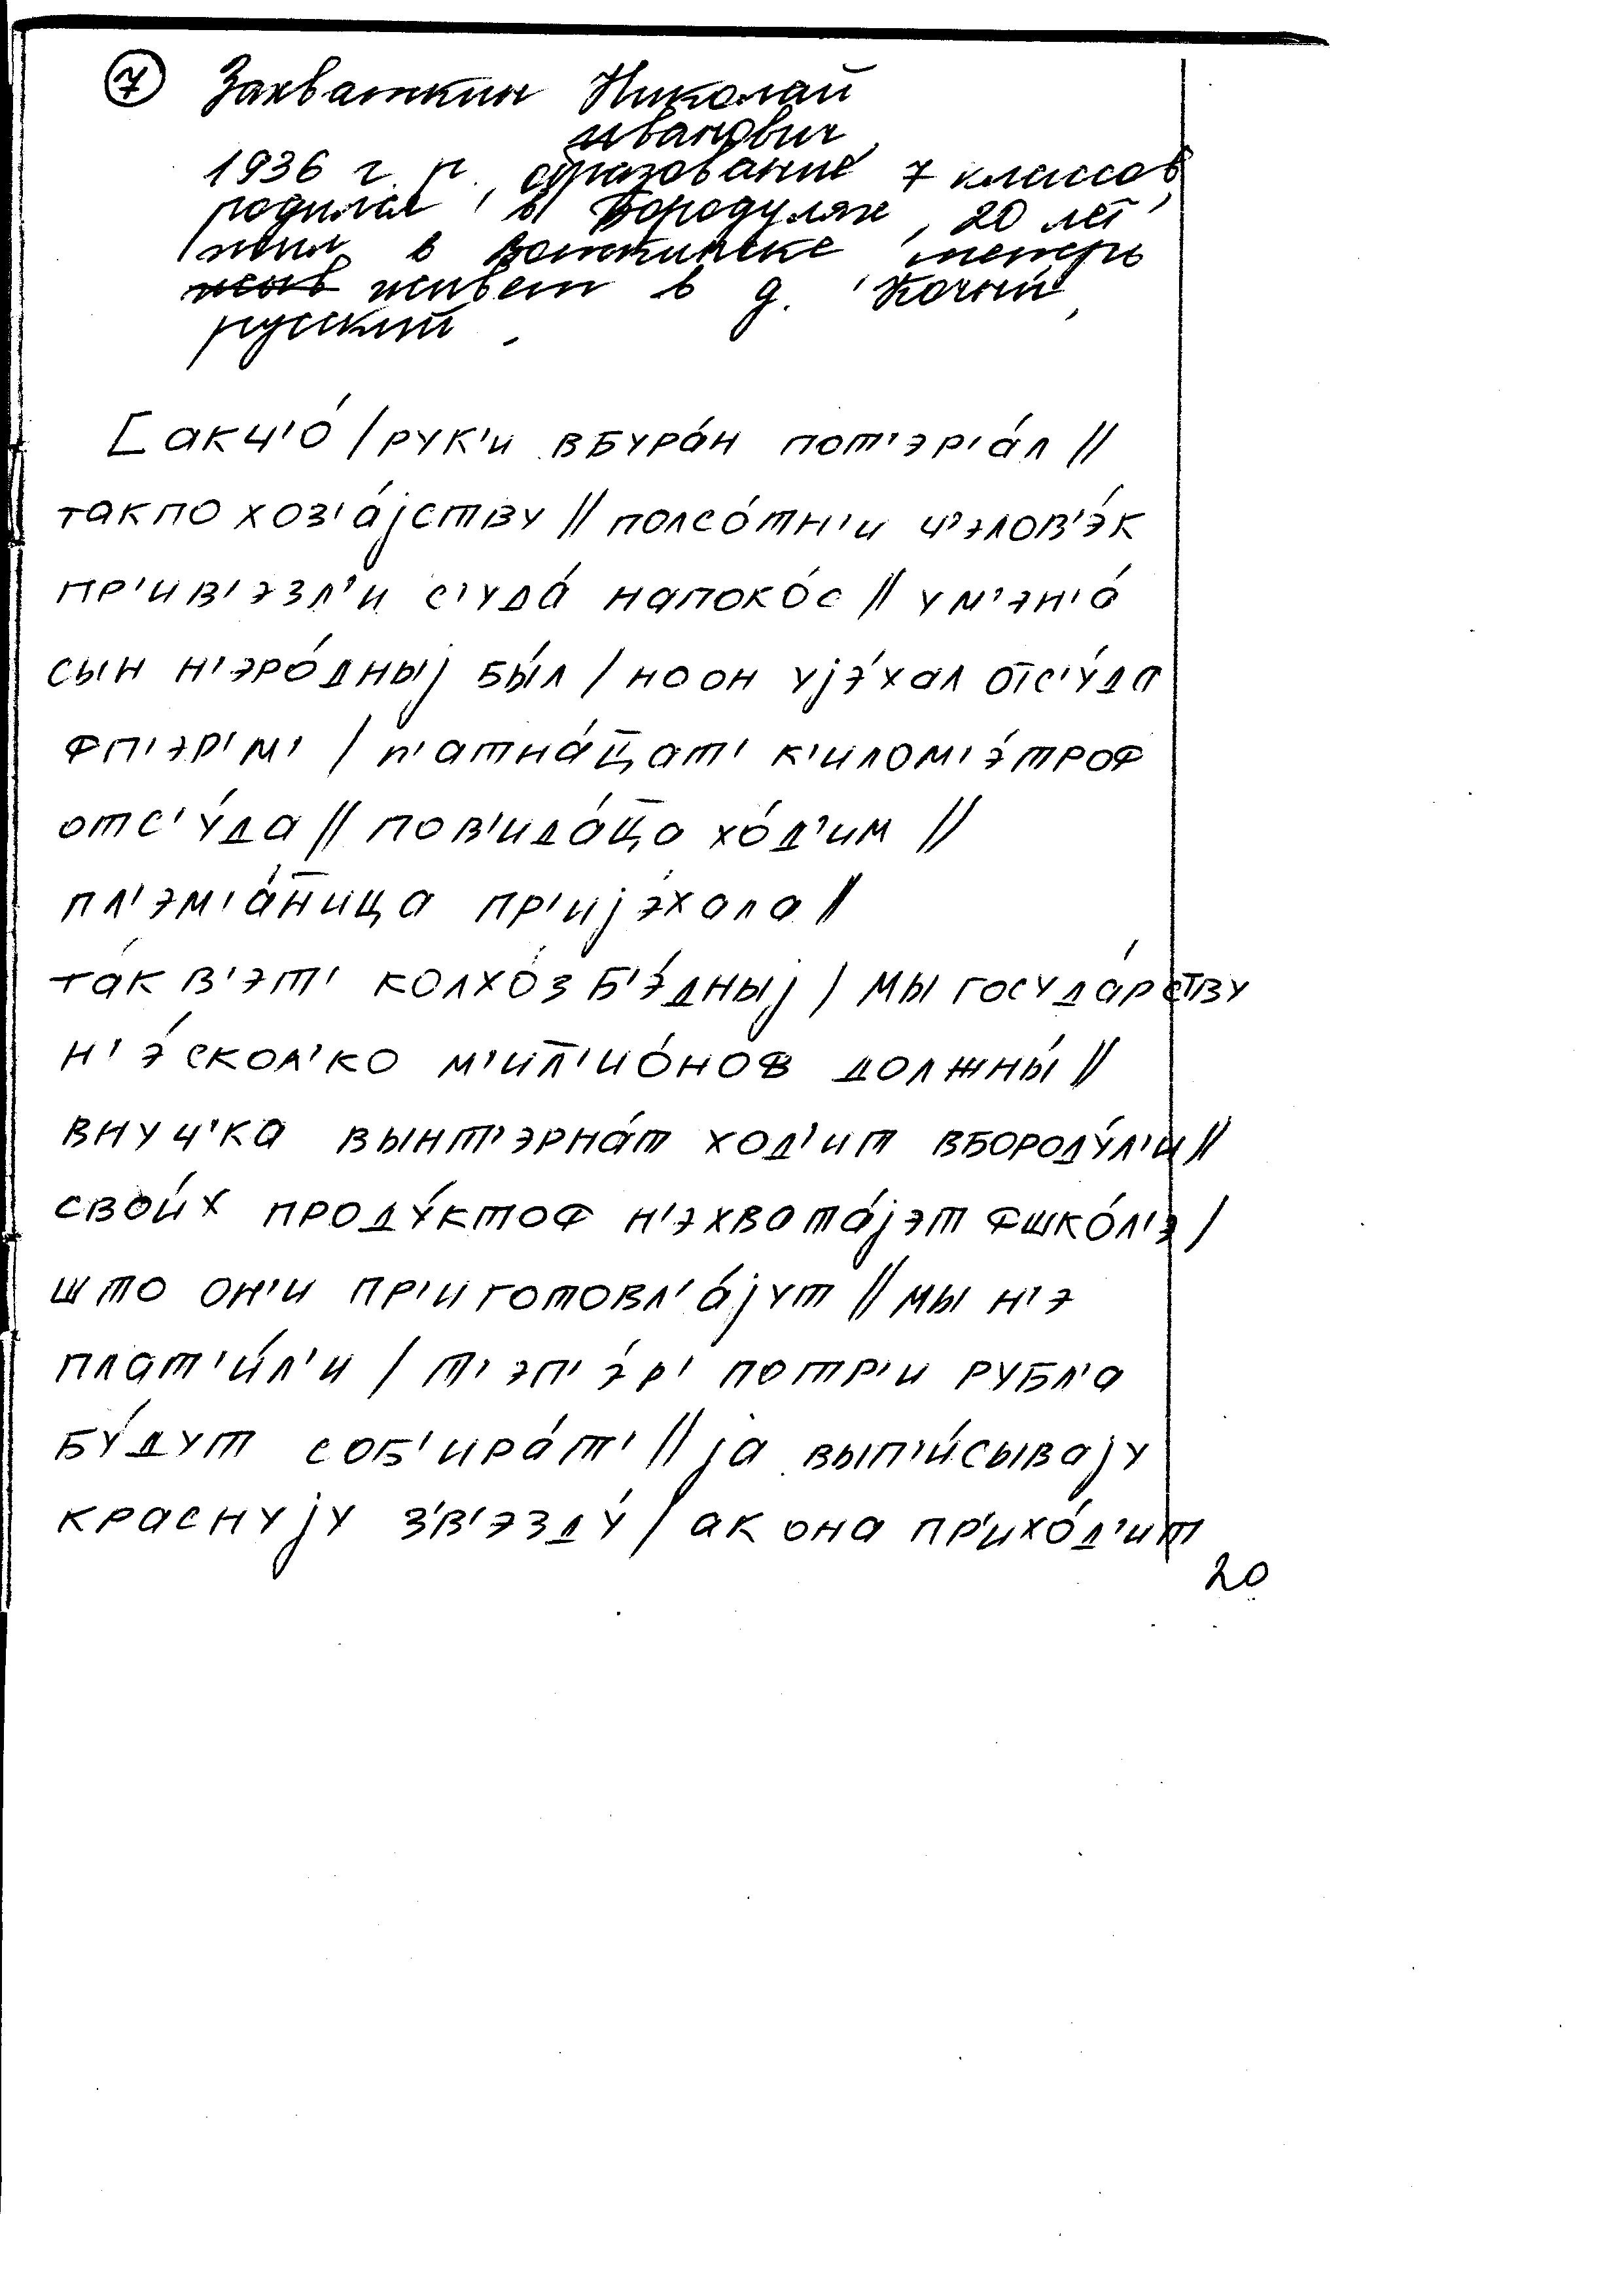 ⑦ Захваткин Николай
Иванович
1936 г. р., образование 7 классов,
родился в Бородулях, 20 лет
жил в Воткинске теперь
живет в д.
русский.
[акч'о́ / рук'и вбура́н пот'эр'а́л //
такпо хоз'а́јству // полсо́тн'и ч'элов'э́к
пр'ив'эзл'и с'уда́ напоко́с // ум'эн'а́
сын н'эро́дныј бы́л / но он ује́хал отс'у́да
фп'эр'м' / п'атна́ц̄ат' к'илом'э́троф
отс'у́да // пов'ида́ц̄а хо́д'им //
пл'эм'а́н̄ица пр'ијэ́хала //
та́к в'эт' колхо́з б'э́дныј / мы госуда́рству
н'э́скол'ко м'ил̄'ио́ноф должны́ //
внуч'ка вынт'эрна́т ход'ит вбороду́л'и //
свои́х проду́ктоф н'эхвата́јэт фшко́л'э /
што он'и пр'иготовл'а́јут // мы н'э
плат'и́л'и / т'эп'э́р' потр'и рубл'а
бу́дут соб'ира́т' // ја вып'и́сывају
краснују з'в'эзду́ / ак она пр'ихо́д'ит
20